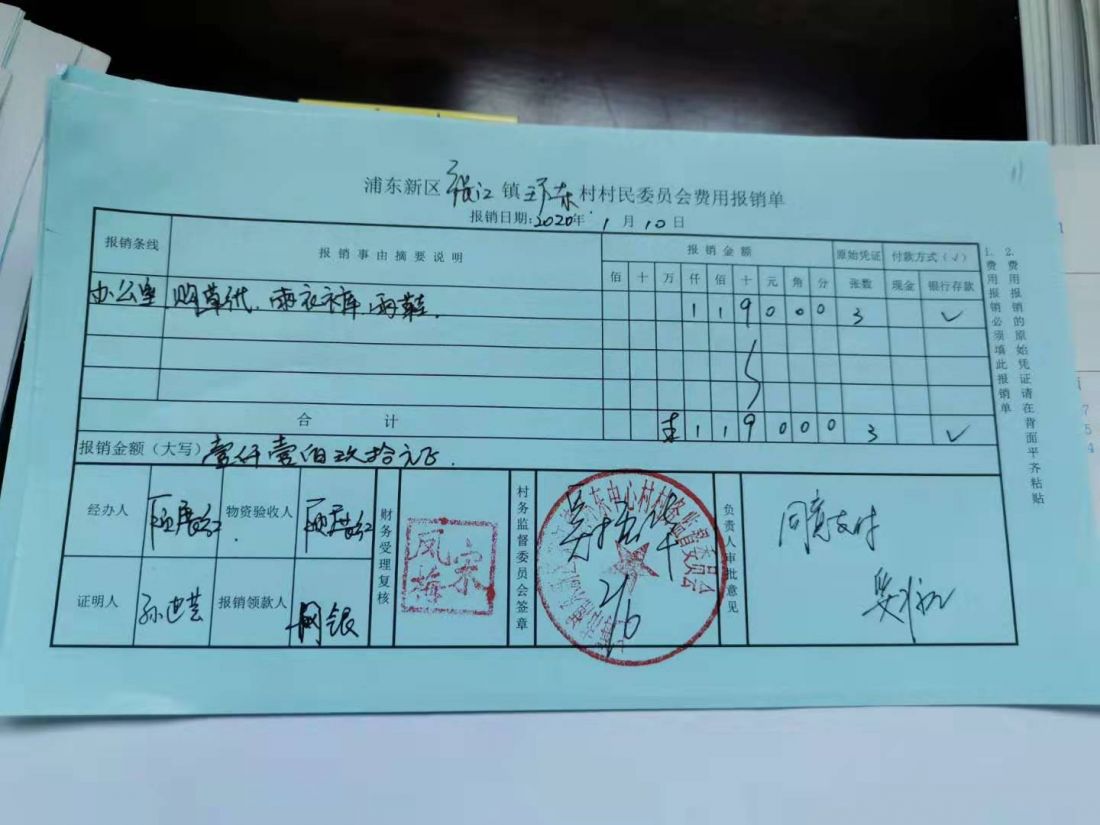 11
浦东新区张江镇环东村村民委员会费用报销单
报销日期:2020年1月10日
报销条线 报销事由摘要说明 报销金额 原始凭证 付款方式(√)
佰 十 万 仟 佰 十 元 角 分 张数 现金 银行存款
办公室 购草代、雨衣衣裤、雨鞋. 1 1 9 0 0 0 3 √
合计 1 1 9 0 0 0 3 √
报销金额(大写) 壹仟壹佰玖拾元正.
经办人 物资验收人 财务受理复核 凤梅宋 村务监督委员会签章 2/6 负责人审批意见 同意支付
证明人 孙 报销领款人 网银
村务监督委员会
1. 费用报销必须填此报销单
2. 费用报销的原始凭证请在背面平齐粘贴